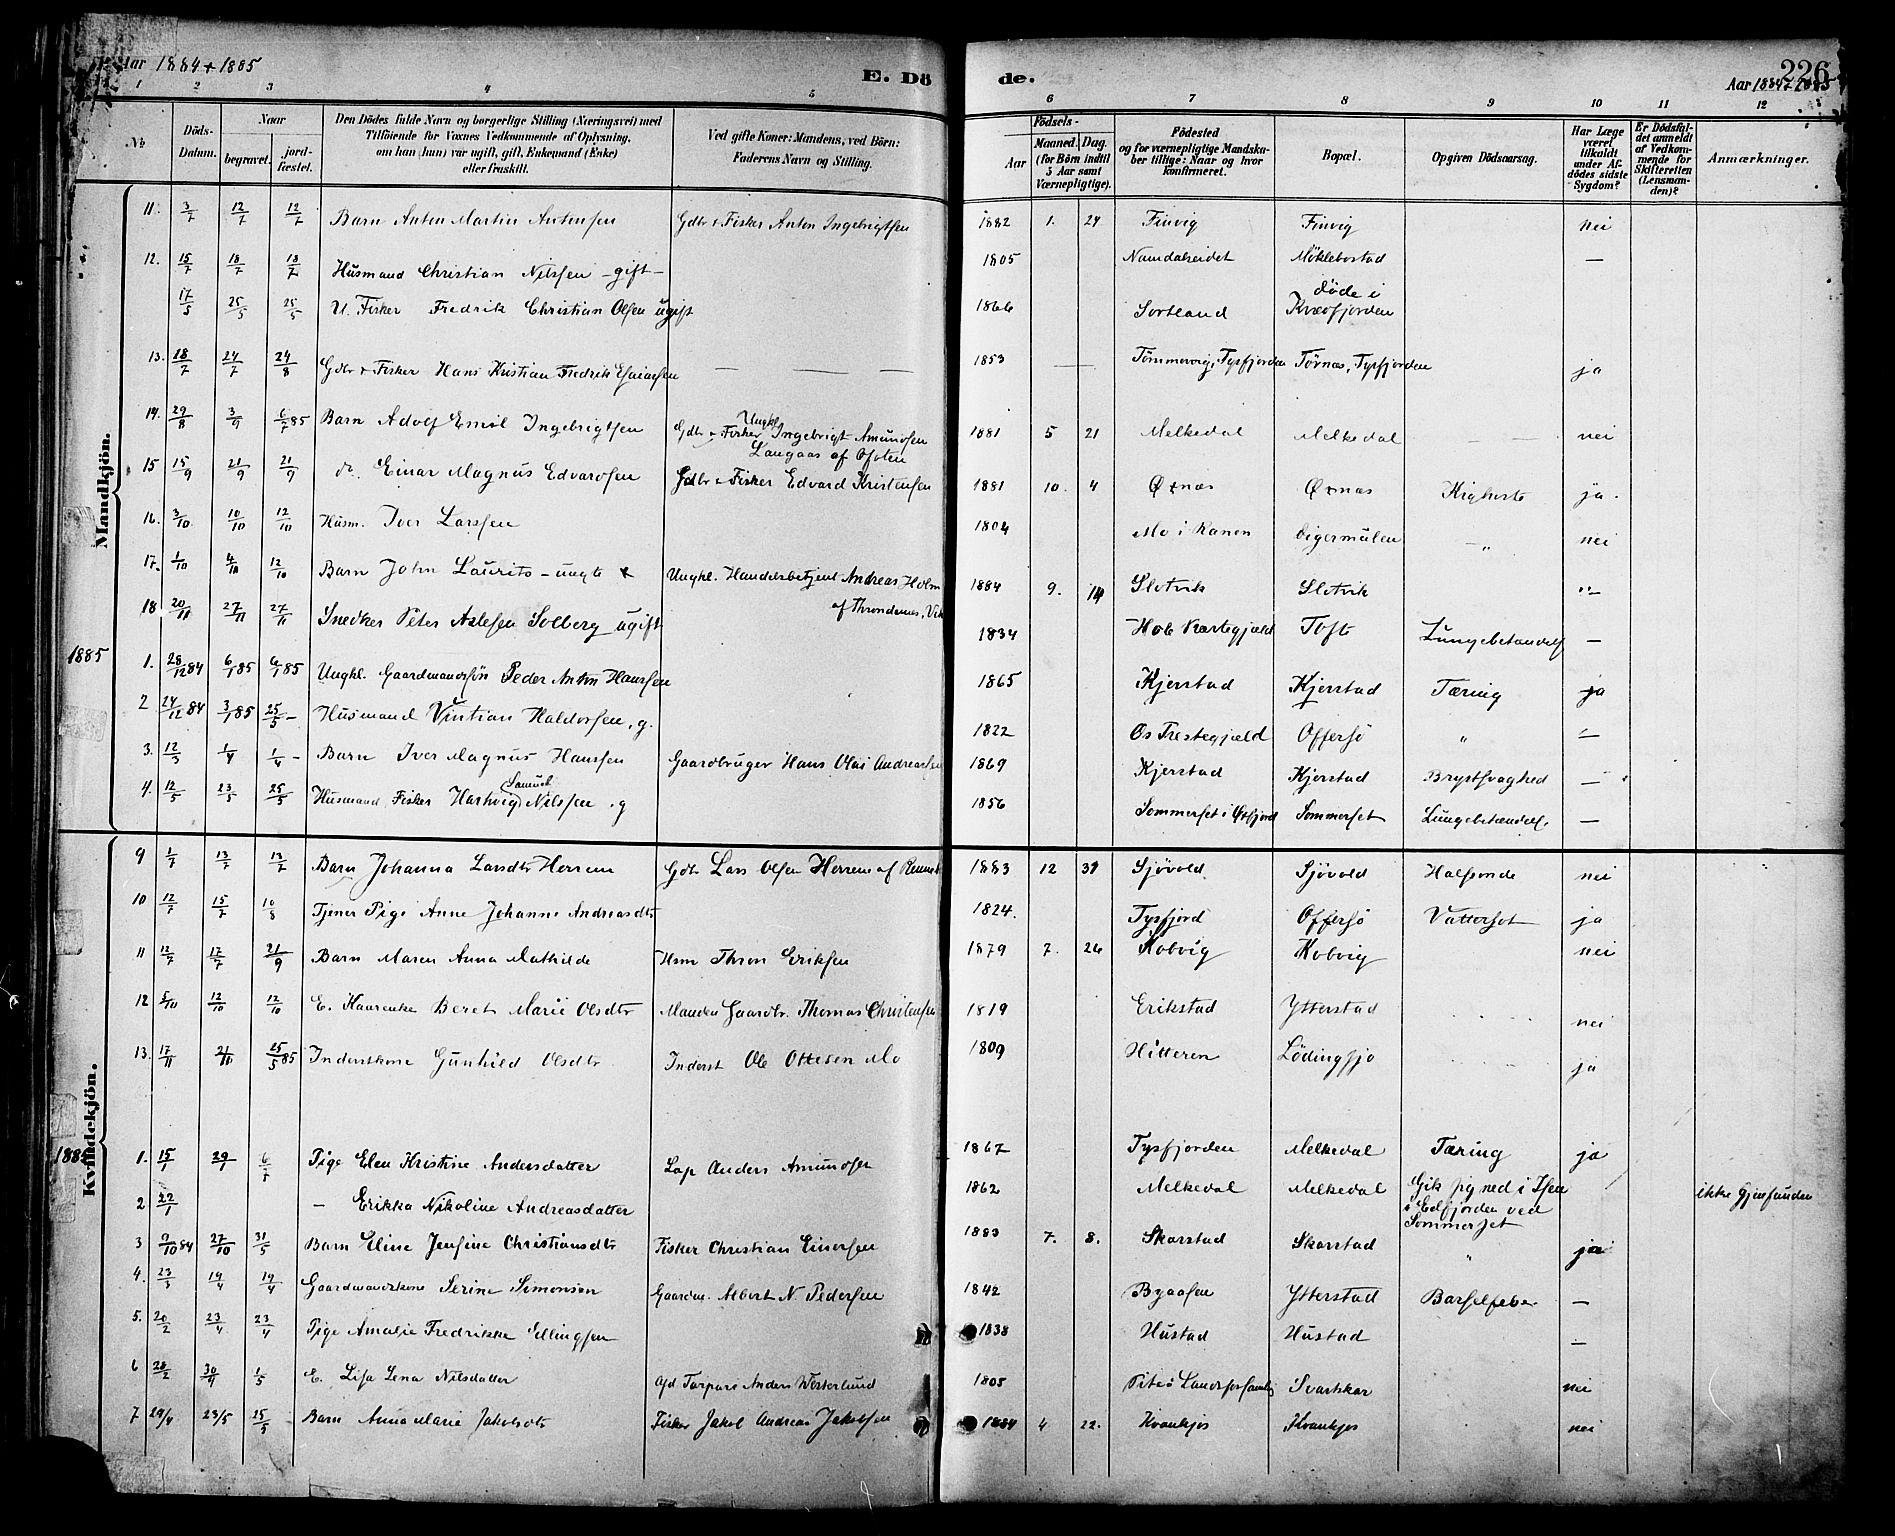 Aar 1884 + 1885
E. Dö
de.
226
Aar 1884 + 1885
1 2 3 4 5 6 7 8 9 10 11 12
No
Döds-Datum.
Naar
begravet.
jord-fæstet.
Den Dödes fulde Navn og borgerlige Stilling (Næringsvei) med
Tilföiende for Voxnes Vedkommende af Oplysning,
om han (hun) var ugift, gift, Enkemand (Enke)
eller fraskilt.
Ved gifte Koner: Mandens, ved Börn:
Faderens Navn og Stilling.
Födsels-
Aar
Maaned. Dag.
(for Börn indtil
5 Aar samt
Værnepligtige).
Födested
og for værnepligtige Mandska-
ber tillige: Naar og hvor
konfirmeret.
Bopæl.
Opgiven Dödsaarsag.
Har Læge
været
tilkaldt
under Af-
dödes sidste
Sygdom?
Er Dödsfal-
det anmeldt
af Vedkom-
mende for
Skifteretten
(Lensman-
den)?
Anmærkninger.
Mandkjön.
11. 3/7 12/7 12/7 Barn Anton Martin Antonsen Gdbr & Fisker Anton Ingebrigtsen 1882 1. 24 Finvig Finvig nei
12. 15/7 18/7 18/7 Husmand Christian Nilssen - gift - 1805 Namdaleidet Möklebostad —
17/5 25/5 25/5 U. Fisker Fredrik Christian Olsen ugift 1866 Sortland döde i Kvæfjorden
13. 18/7 24/7 24/8 Gdbr & Fisker Hans Kristian Fredrik Esaiassen — — — 1853 — Tömmervig, Tysfjorden Törnæs, Tysfjorden ja
14. 29/8 3/9 6/7 85 Barn Adolf Emil Ingebrigtsen Ungkl. Gdbr & Fisker Ingebrigt Amundsen Langaas af Ofoten 1881 5 21 Melkedal Melkedal — — nei
15 15/9 21/9 21/9 do. Einar Magnus Edvardsen Gdbr & Fisker Edvard Kristensen 1881 10. 4 Öxnæs Öxnæs Kighoste ja.
16. 3/10 10/10 12/10 Husm. Iver Larssen 1804 Mo i Ranen Digermulen — " nei
17. 1/10 4/10 12/10 Barn John Laurits - uægte Ungkl. Handelsbetjent Andreas Holm af Throndenes, Vik 1884 9. 14 Slotvik Slotvik "—
18 20/11 27/11 27/11 Snedker Peter Axlesen Solberg ugift 1834 Hole Præstegjæld Tofte Lungebetændels —
1885
1. 28/12 84 6/1 85 6/1 85 Ungkl. Gaardmandssön Peder Anton Hanssen 1865 Kjerstad Kjerstad Tæring ja
2 24/12 84 3/1 85 25/5 - Husmand Haldorsen, g. 1822 Os Prestegjæld Offersö " —
3. 12/3 1/4 1/4 - Barn Iver Magnus Hanssen Gaardbruger Hans Olai Andreassen 1869 Kjerstad Kjerstad Brystsvaghed —
4. 12/5 23/5 25/5 Husmand, Fisker Hartvig Samuel Nilssen. g 1856 Sommerset i Sommerset Lungebetændels. —
Kvindekjön.
9 1/7 13/7 13/7 Barn Johanna Larsdtr Herrem Gdbr Lars Olsen Herrem af 1883 12 31 Sjövold Sjövold Halsonde nei
10 12/7 15/7 10/8 Tjener Pige Anne Johanna Andreasdtr 1824. Tysfjord Offersö Vattersot ja
11 12/7 17/7 21/9 Barn Maren Anna Mathilde Hsm Thron Eriksen 1879 7. 26 Kobvig Kobvig nei
12 5/10 12/10 12/10 E. Kaarenke Beret Marie Olsdtr Manden Gaardbr. Thomas Christensen 1819 Erikstad Ytterstad nei
13. 17/11 21/11 25/5 85 Inderstkone Gunhild Olsdtr Inderst Ole Ottesen Mo 1809 Hitteren Lödingsjo ja
1885
1. 15/1 29/1 6/5 Pige Elen Kristine Andersdatter Lap Anders Amundsen 1867 Tysfjorden Melkedal Tæring ja
2 22/1 — Erikka Nikoline Andreasdatter 1862 Melkedal Melkedal Gik sig ned i Isen i Eidfjorden ved Sommerset ikke gjenfunden
3 9/10 84 27/10 31/5 Barn Eline Jensine Christiansdtr Fisker Christian Einersen 1883 7. 8. Skarstad Skarstad " ja
4. 23/3 19/4 19/4 Gaardmandskone Serine Simonsen Gaardm. Albert N Pedersen 1842 Bynæsen Ytterstad Barselfeber —
5. 20/2 23/4 23/4 Pige Amalie Fredrikke Ellingsen 1838 Hustad Hustad —
6 28/2 30/4 1/5 E. Lisa Lena Nilsdatter Anders Westerlund 1805 Piteå Landsforsamlig Svartskar nei
7 29/4 23/5 25/5 Barn Anna Marie Jakobsdtr Fisker Jakob Andreas Jakobsen 1884 4 22. Kvankjos Kvankjos nei